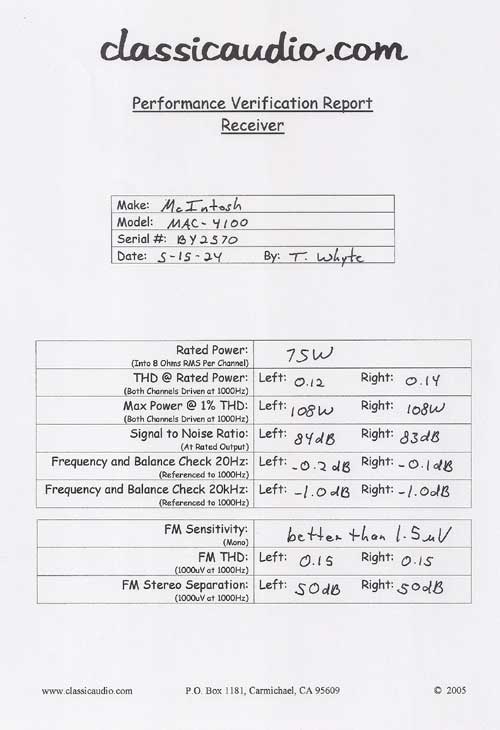 classicaudio.com
Performance Verification Report
Receiver
Make: McIntosh
Model: MAC-4100
Serial #: BY2570
Date: 5-15-24 By: T. Whyte
Rated Power: 75W
(Into 8 Ohms RMS Per Channel)
THD @ Rated Power: Left: 0.12 Right: 0.14
(Both Channels Driven at 1000Hz)
Max Power @ 1% THD: Left: 108W Right: 108W
(Both Channels Driven at 1000Hz)
Signal to Noise Ratio: Left: 84dB Right: 83dB
(At Rated Output)
Frequency and Balance Check 20Hz: Left: -0.2dB Right: -0.1dB
(Referenced to 1000Hz)
Frequency and Balance Check 20kHz: Left: -1.0dB Right: -1.0dB
(Referenced to 1000Hz)
FM Sensitivity: better than 1.5uV
(Mono)
FM THD: Left: 0.15 Right: 0.15
(1000uV at 1000Hz)
FM Stereo Separation: Left: 50dB Right: 50dB
(1000uV at 1000Hz)
www.classicaudio.com P.O. Box 1181, Carmichael, CA 95609 © 2005